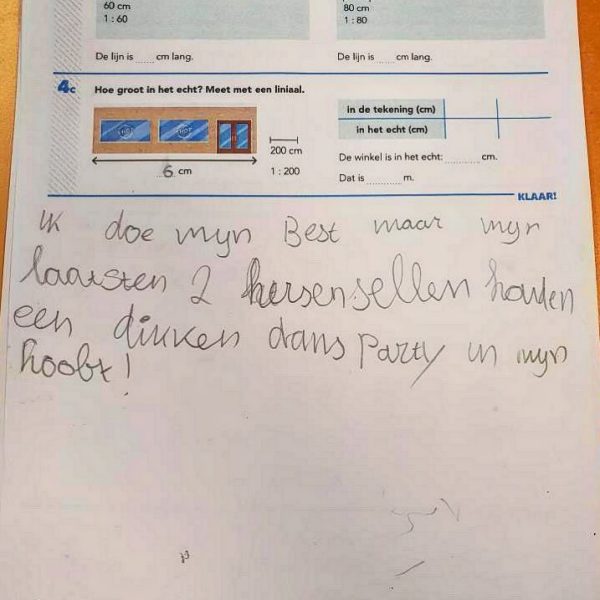 60 cm
1 : 60
De lijn is ...... cm lang.
80 cm
1 : 80
De lijn is ...... cm lang.
4c Hoe groot in het echt? Meet met een liniaal.
6 cm
200 cm
1 : 200
in de tekening (cm)
in het echt (cm)
De winkel is in het echt: .......... cm.
Dat is .......... m.
KLAAR!
ik doe mijn Best maar mijn
laatsten 2 hersensellen houden
een dikken dans Party in mijn
hoobt!